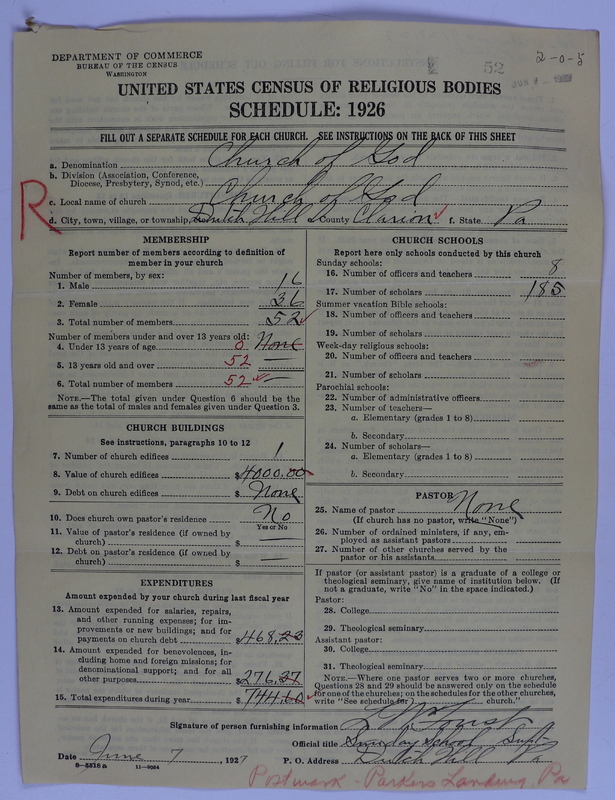 DEPARTMENT OF COMMERCE
BUREAU OF THE CENSUS
WASHINGTON
52
2-0-5
UNITED STATES CENSUS OF RELIGIOUS BODIES
SCHEDULE: 1926
FILL OUT A SEPARATE SCHEDULE FOR EACH CHURCH. SEE INSTRUCTIONS ON THE BACK OF THIS SHEET
a. Denomination Church of God
b. Division (Association, Conference, Diocese, Presbytery, Synod, etc.)
c. Local name of church Church of God
R
d. City, town, village, or township, Dutch Hill County Clarion f. State Pa
MEMBERSHIP
Report number of members according to definition of member in your church
Number of members, by sex:
1. Male 16
2. Female 36
3. Total number of members 52
Number of members under and over 13 years old:
4. Under 13 years of age 0 None
5. 13 years old and over 52
6. Total number of members 52
NOTE.—The total given under Question 6 should be the same as the total of males and females given under Question 3.
CHURCH BUILDINGS
See instructions, paragraphs 10 to 12
7. Number of church edifices 1
8. Value of church edifices $4000.00
9. Debt on church edifices $ None
10. Does church own pastor's residence No
Yes or No
11. Value of pastor's residence (if owned by church) $
12. Debt on pastor's residence (if owned by church) $
EXPENDITURES
Amount expended by your church during last fiscal year
13. Amount expended for salaries, repairs, and other running expenses; for improvements or new buildings; and for payments on church debt $468.23
14. Amount expended for benevolences, including home and foreign missions; for denominational support; and for all other purposes $276.37
15. Total expenditures during year $744.60
CHURCH SCHOOLS
Report here only schools conducted by this church
Sunday schools:
16. Number of officers and teachers 8
17. Number of scholars 185
Summer vacation Bible schools:
18. Number of officers and teachers
19. Number of scholars
Week-day religious schools:
20. Number of officers and teachers
21. Number of scholars
Parochial schools:
22. Number of administrative officers
23. Number of teachers—
a. Elementary (grades 1 to 8)
b. Secondary
24. Number of scholars—
a. Elementary (grades 1 to 8)
b. Secondary
PASTOR
25. Name of pastor None
(If church has no pastor, write "None")
26. Number of ordained ministers, if any, employed as assistant pastors
27. Number of other churches served by the pastor or his assistants
If pastor (or assistant pastor) is a graduate of a college or theological seminary, give name of institution below. (If not a graduate, write "No" in the space indicated.)
Pastor:
28. College
29. Theological seminary
Assistant pastor:
30. College
31. Theological seminary
NOTE.—Where one pastor serves two or more churches, Questions 28 and 29 should be answered only on the schedule for one of the churches; on the schedules for the other churches, write "See schedule for church."
Signature of person furnishing information
Official title Sunday School Supt
Date June 7, 1927 P. O. Address Dutch Hill Pa
11-9064
Postmark - Parkers Landing, Pa